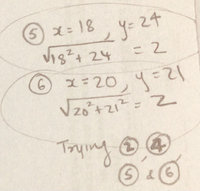 ⑤ x = 18, y = 24
√18² + 24 = 2
⑥ x = 20, y = 21
√20² + 21² = Z
Trying ② , ④
⑤ & ⑥